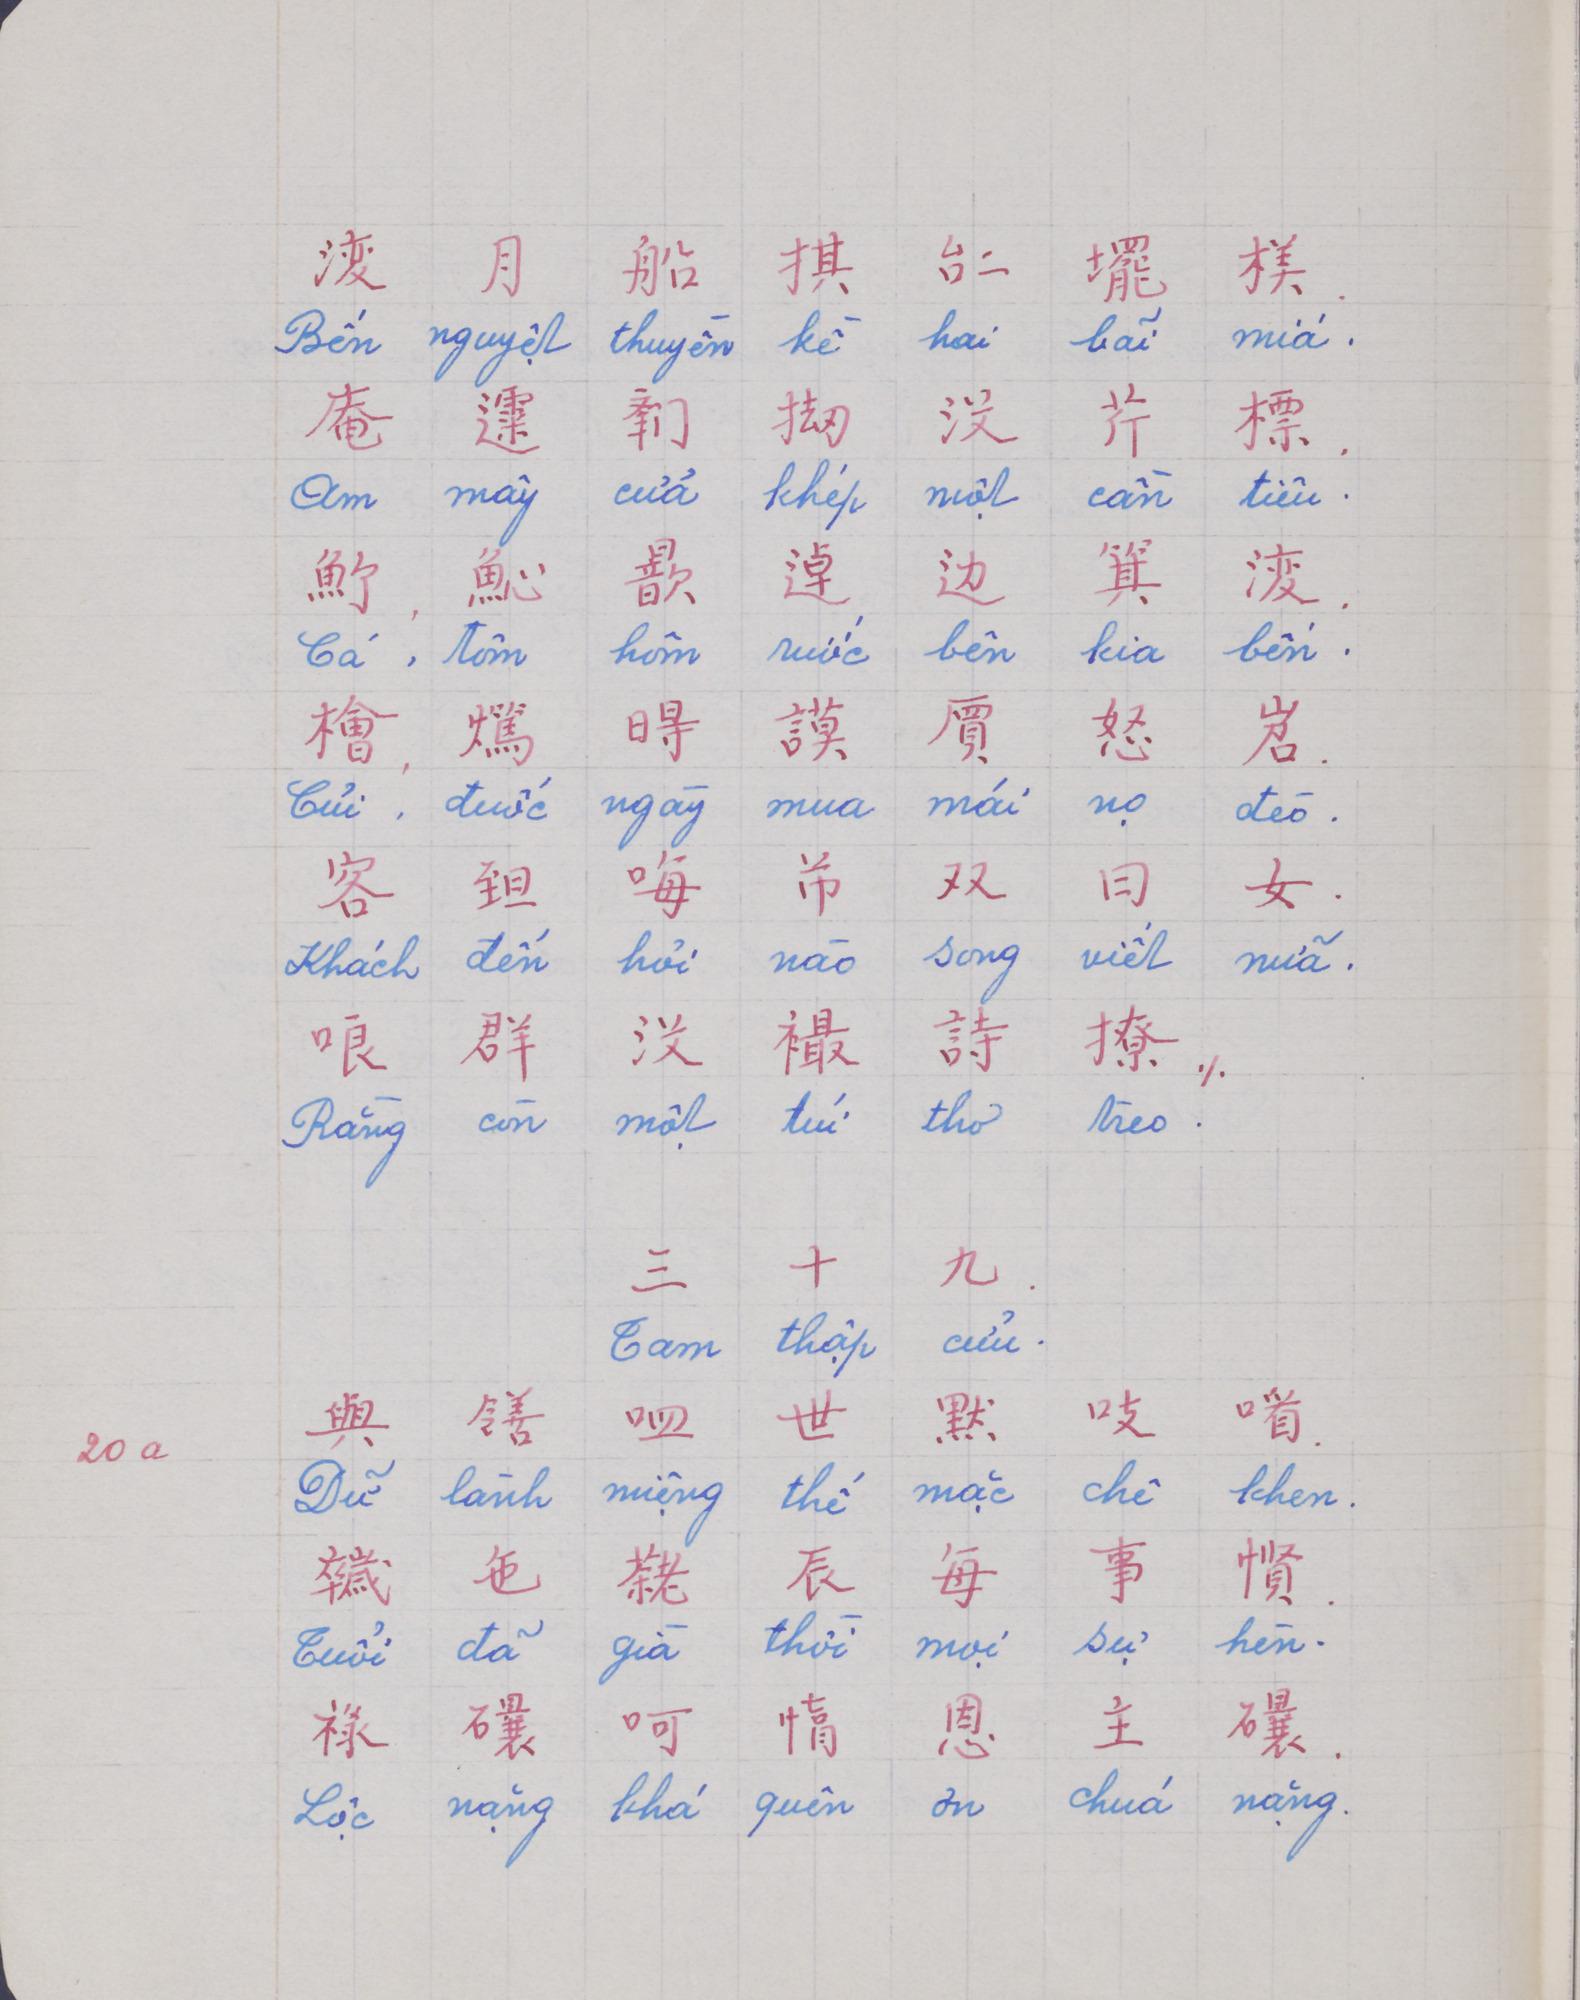 渡 月 船 掑 𠄩 𡓁 楳.
Bến nguyệt thuyền kề hai bãi miá.
庵 𩄲 𨷶 㧜 没 芹 標.
Am mây cửả khép một cần tiêu.
𩵜, 𩵽 歆 逴 边 箕 渡.
Cá, tôm hôm rước bên kia bến.
檜, 𤒠 㝵 謨 價 怒 岧.
Củi, đước ngày mua mái nọ đèo.
容 𦤾 𠳨 芇 双 曰 女.
Khách đến hỏi nào song viết nữã.
哴 群 没 襊 詩 撩 ./.
Rằng còn một túi thơ treo.
三 十 九.
Tam thập cửu.
20 a
與 𫅜 𠰘 世 默 吱 𠸦.
Dữ lành miệng thế mặc chê khen.
𢆫 㐌 𦓅 辰 每 事 㦓.
Tuổi đã già thời mọi sự hèn.
祿 𥗾 呵 𢢯 恩 主 𥗾.
Lộc nặng khá quên ơn chuá nặng.